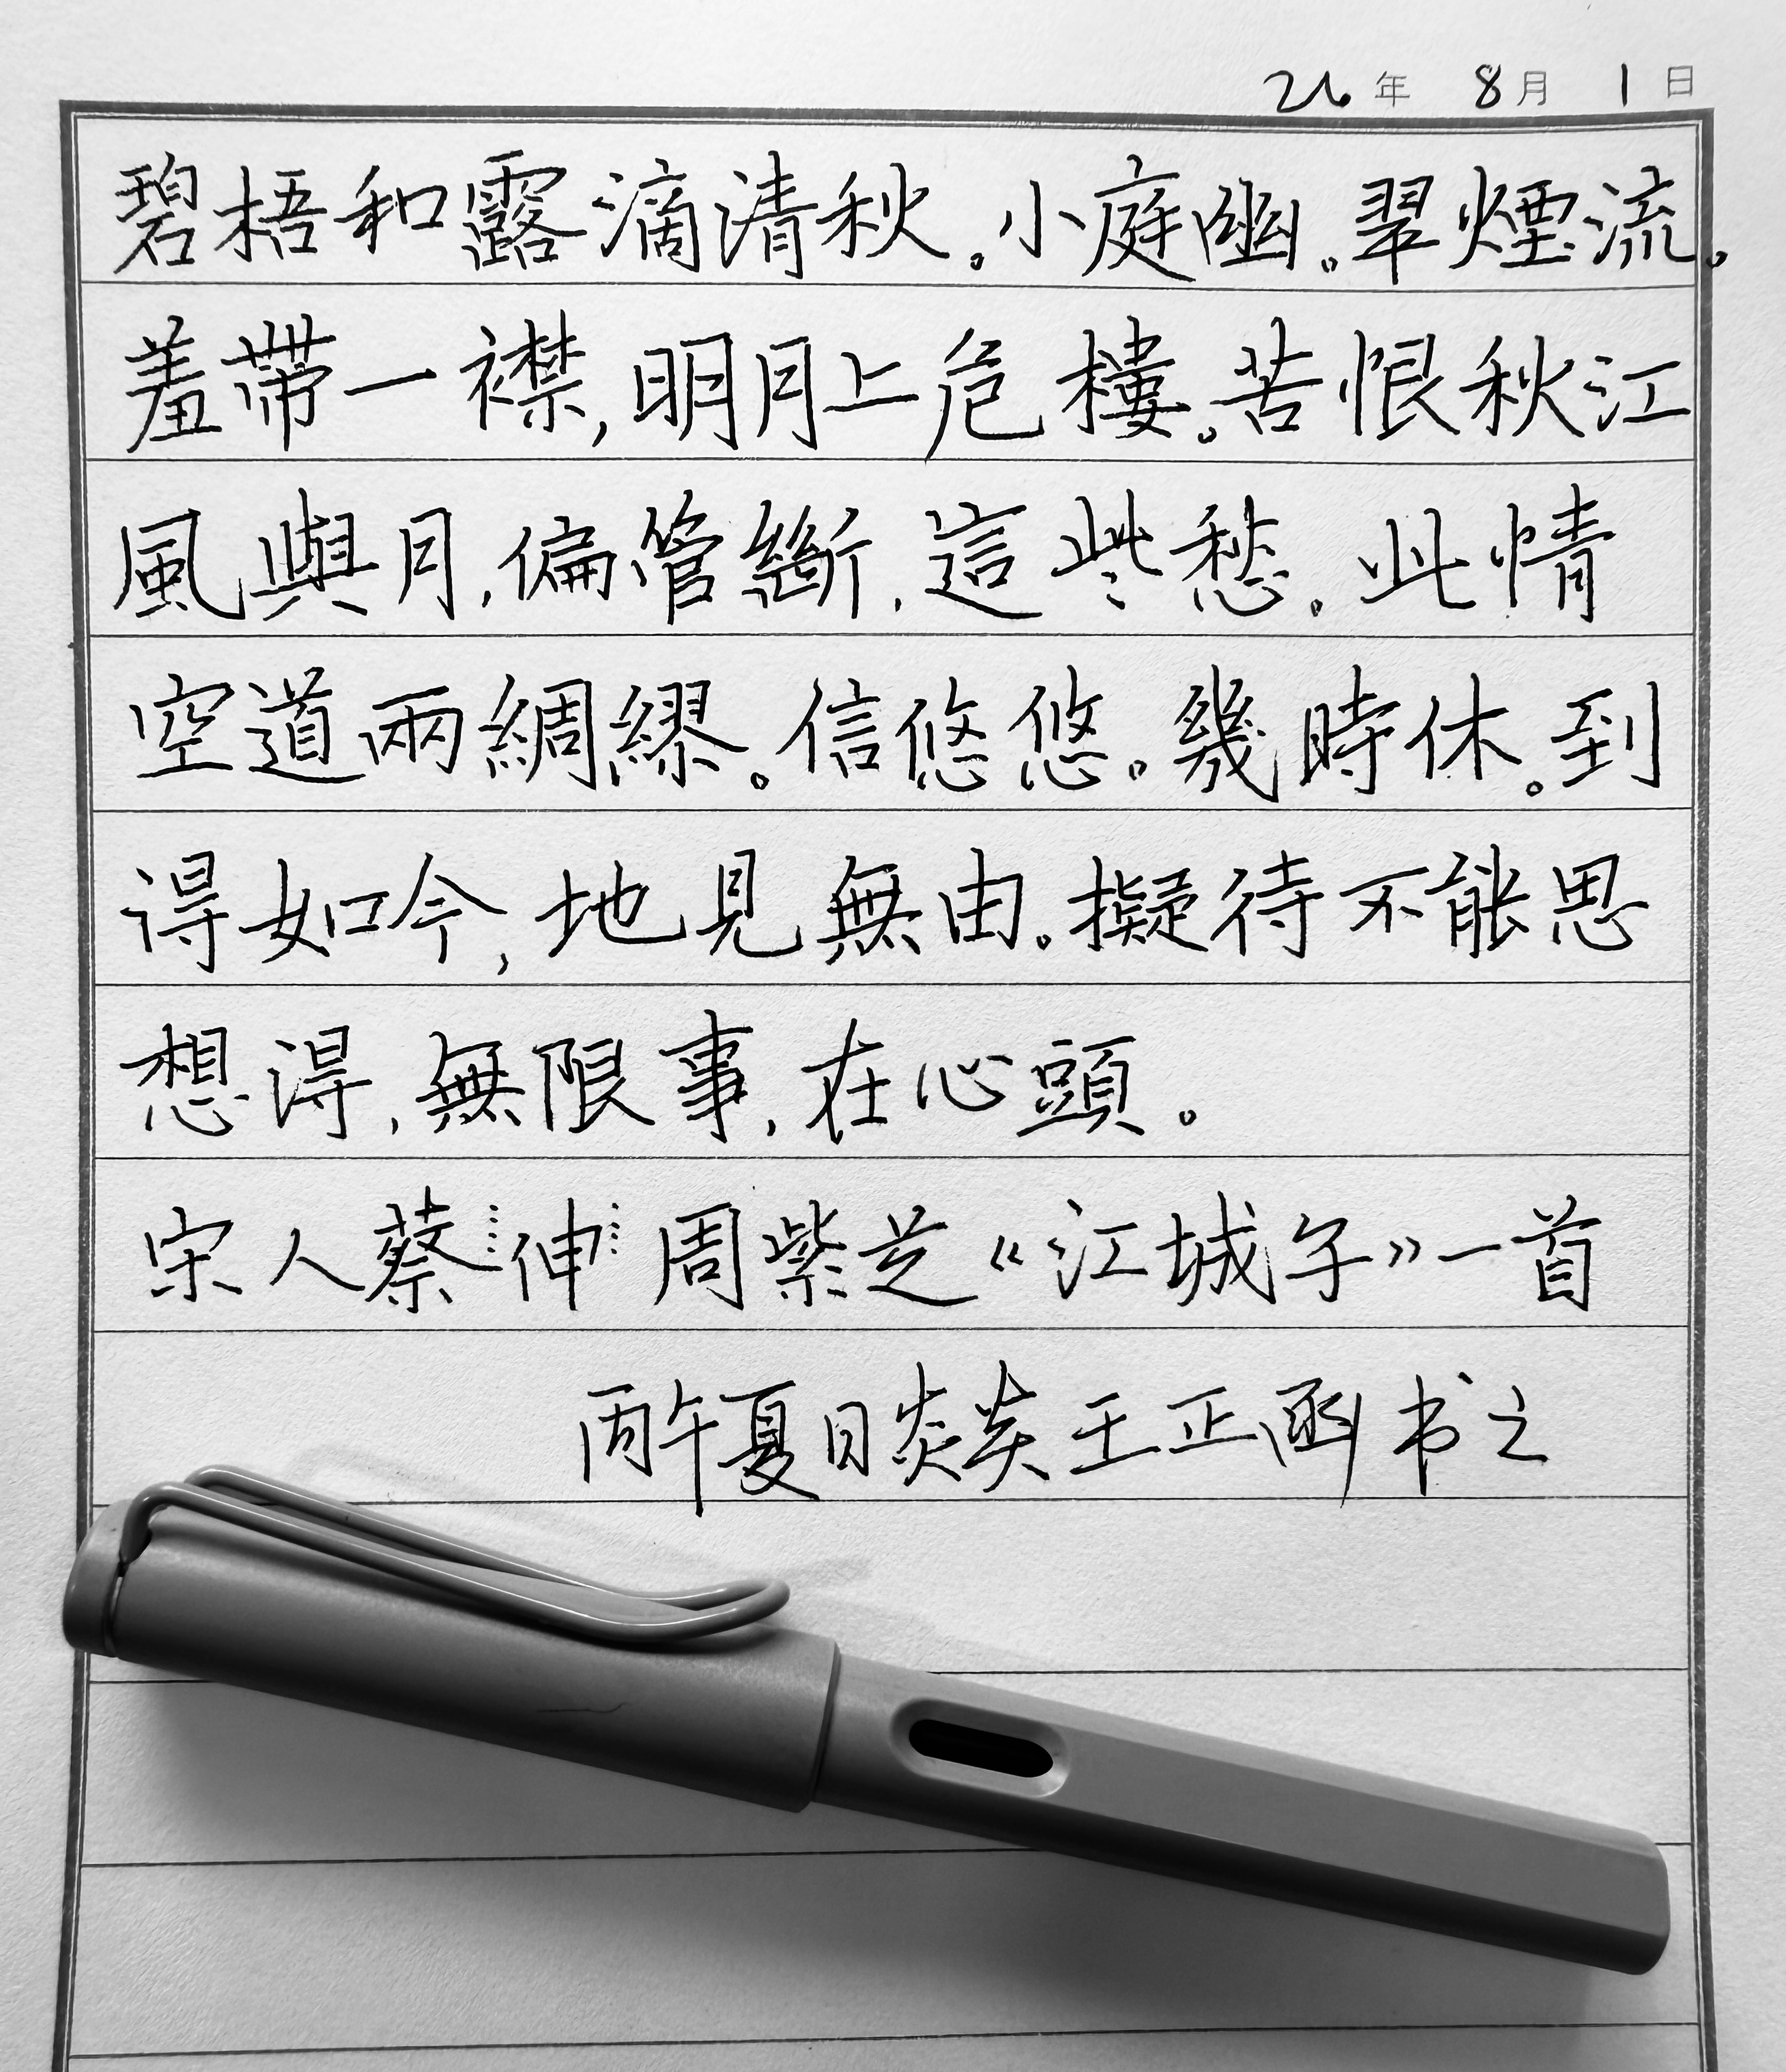 26年 8月 1日
碧梧和露滴清秋。小庭幽。翠煙流。
羞帶一襟,明月上危樓。苦恨秋江
風與月,偏管斷,這些愁。此情
空道兩綢繆。信悠悠。幾時休。到
得如今,地見無由。擬待不能思
想得,無限事,在心頭。
宋人蔡伸 周紫芝《江城子》一首
丙午夏日炎炎王正函书之